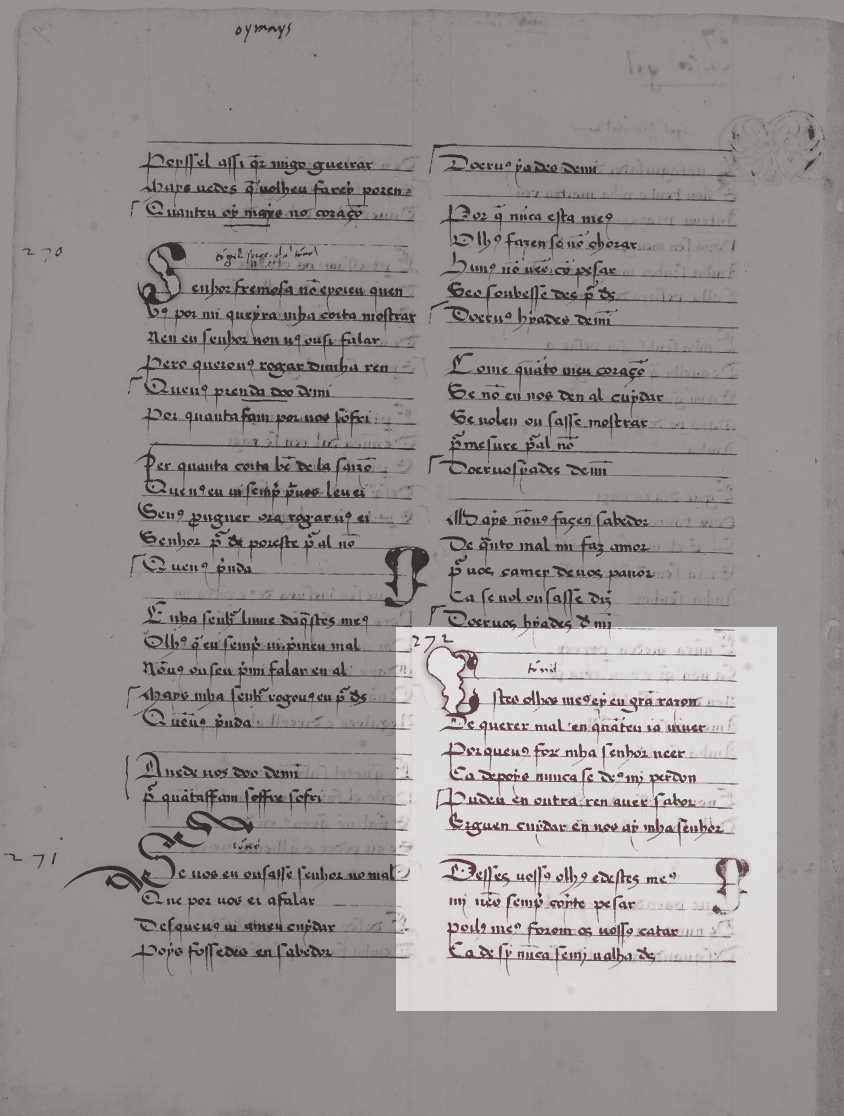 oymays
Poyssel assi q̄r migo gueirar
Mays uedes q̄ uolheu farey poren
Quanteu oy mays no coraçō
270
Senhor fremosa nō e poren quen
Vꝰ por mi queyra mha coita mostrar
Nen eu senhor non uꝰ ousi falar
Pero querouꝰ rogar dunha ren
Quenꝰ prenda doo demi
Por quanta fam por nos sofri
Per quanta coita bē de la sazō
Quenꝰ eu ui semp̄ p̄uos leuei
Senꝰ prouguer ora rogar uꝰ ei
Senhor p̄ ds̄ por este p̄ al nō
Quenꝰ p̄nda
E nha senhr̄ lume daq̄stes meꝰ
Olhꝰ q̄ eu semp̄ ui p̄meu mal
Nōuꝰ ouseu p̄mi falar en al
Mays mha senhr̄ rogouꝰ eu p̄ ds̄
Quēuꝰ p̄nda
Auede uos doo demi
p̄ quātaffam soffre sofri
271
Se uos eu ousasse senhor no mal
Que por uos ei a falar
Desqueuꝰ ui ameu cuydar
Poys fossedes en sabedor
Doeruꝰ yades demi
Por q̄ nūca esta meꝰ
Olhꝰ fazen se nō chorar
Hunꝰ nō ueē cō pesar
Seo soubesse des p̄ ds̄
Doeruꝰ hyades demī
Come quāto meu coraçō
Se nō eu nos den al cuydar
Se uoleu ou sasse mostrar
p̄ mesure p̄ al nō
Doeruos yades demī
Mays nōuꝰ façen sabedor
De q̄nto mal mi faz amor
p̄ uos, camey deuos pauor
Ca se uol ousasse diz̄
Doeruos hyades d̄ mī
272
Estes olhos meꝰ ey eu grā razon
De querer mal en quāteu ia uiuer
Porqueuꝰ forō mha senhor ueer
Ca depoys nunca se deꝰ mi perdon
Pudeu en outra ren auer sabor
Erguen cuydar en uos ay mha senhor
Desses uossꝰ olhꝰ edestes meꝰ
mi ueō semp̄ coyte pesar
poilꝰ meꝰ forom os uossꝰ catar
Ca de sy nūca semj ualha ds̄